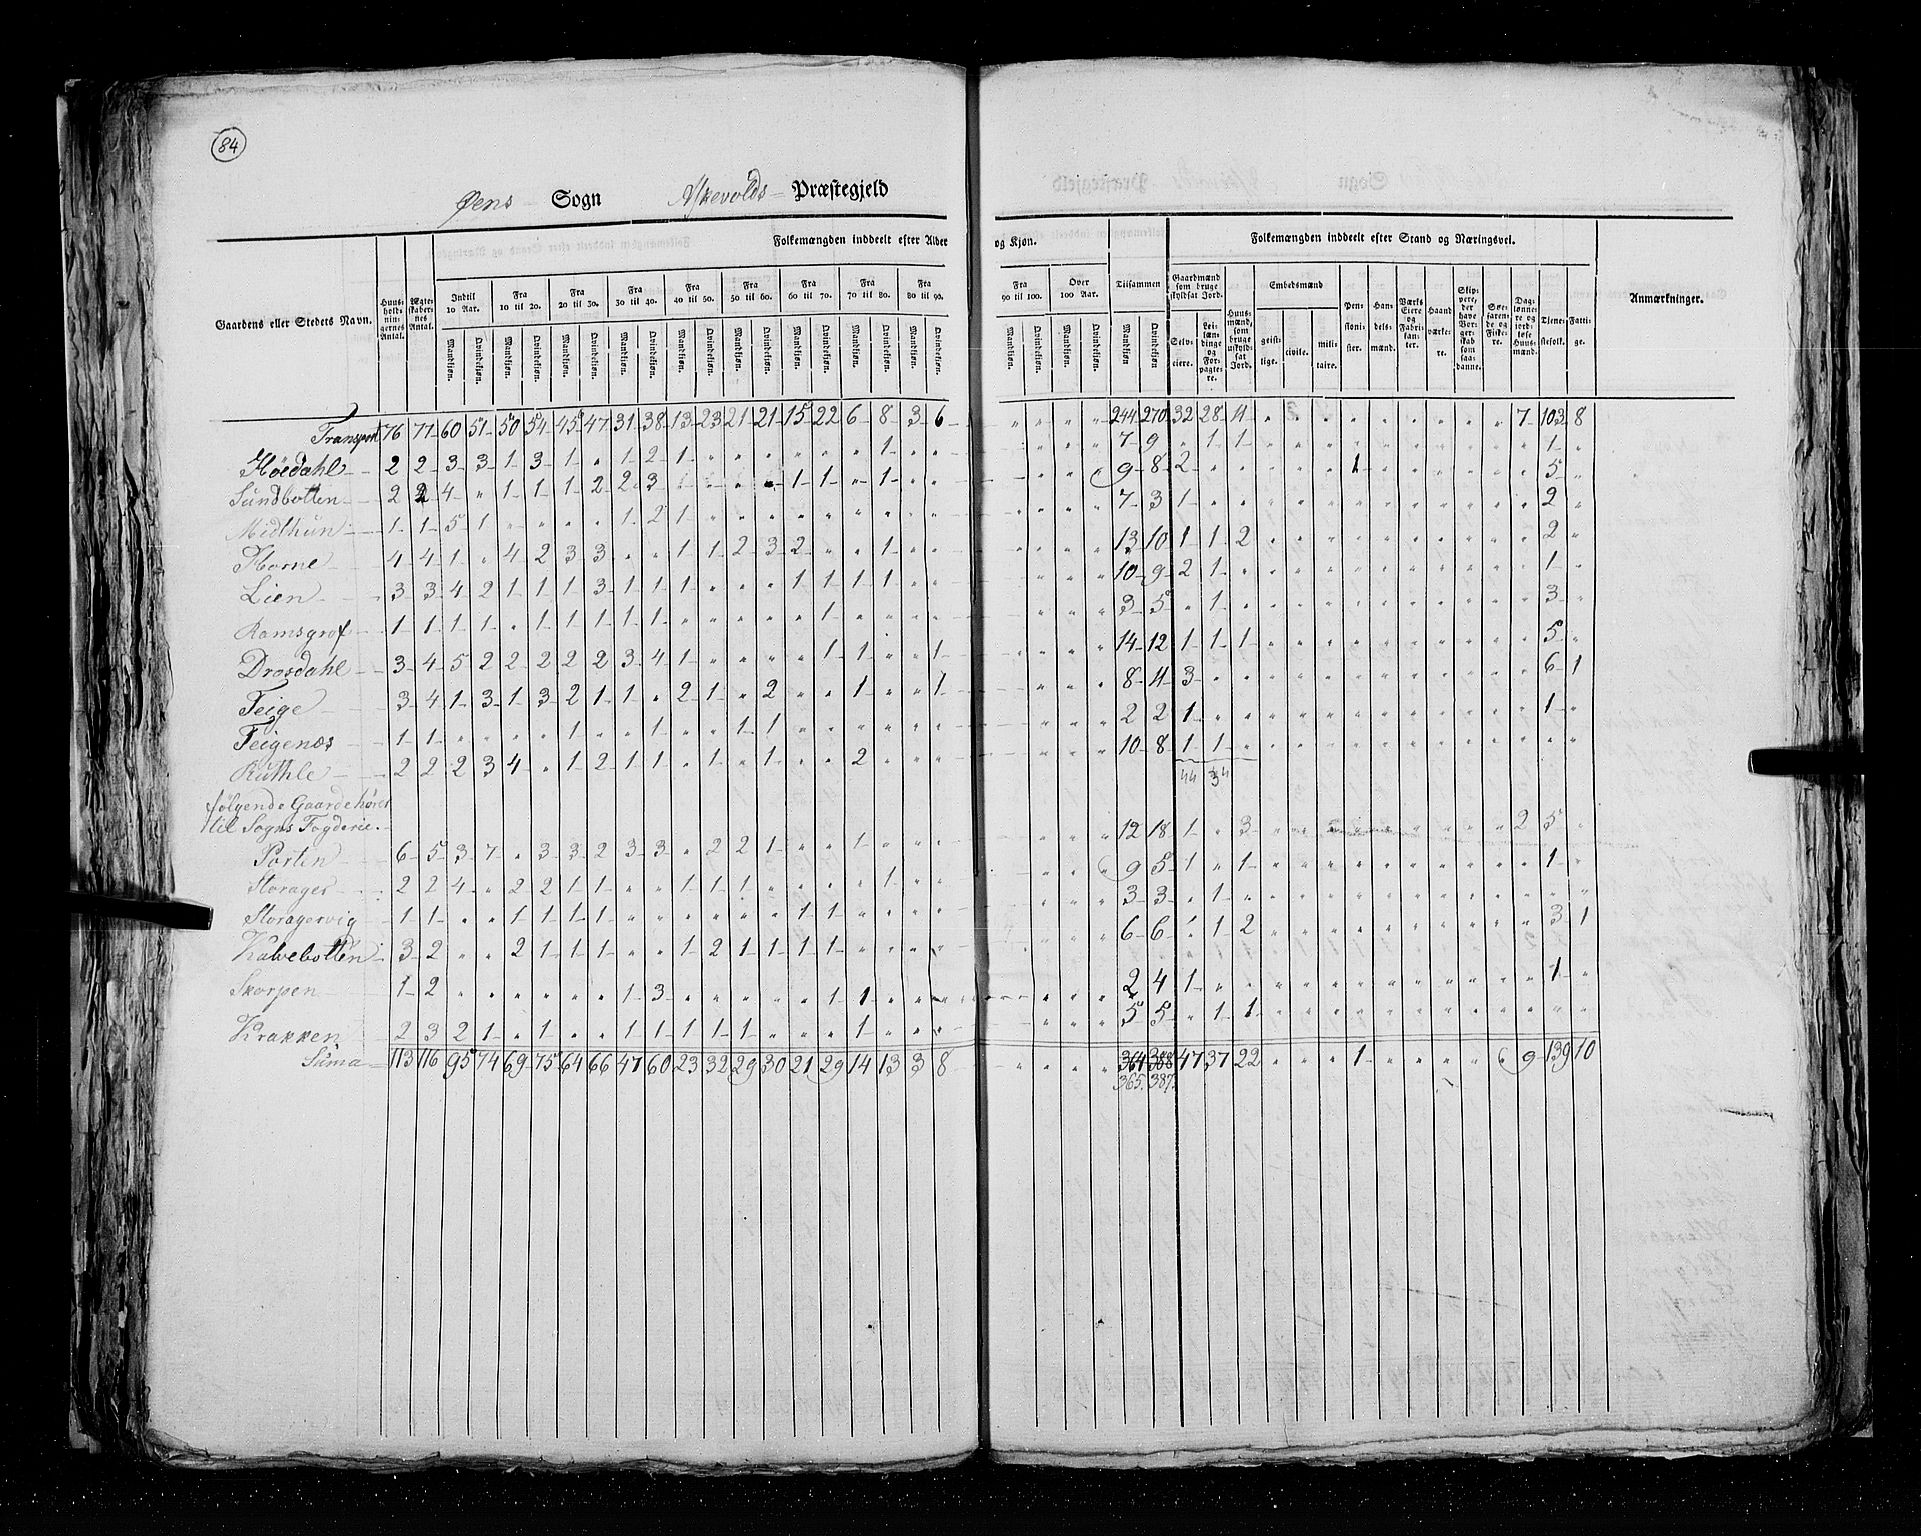 84
Øens Sogn Askevolds Præstegjeld
Folkemængden inddeelt efter Alder og Kjøn.
Folkemængden inddeelt efter Stand og Næringsvei.
Gaardens eller Stedets Navn.
Huusholdningernes Antal.
Ægteskabernes Antal.
Indtil 10 Aar.
Fra 10 til 20.
Fra 20 til 30.
Fra 30 til 40.
Fra 40 til 50.
Fra 50 til 60.
Fra 60 til 70.
Fra 70 til 80.
Fra 80 til 90.
Fra 90 til 100.
Over 100 Aar.
Tilsammen
Mandkjøn. Qvindekjøn.
Gaardmænd som bruge skyldsat Jord.
Selveiere.
Leilændinge og Forpagtere.
Huusmænd, som bruge uskyldsat Jord.
Embedsmænd
geistlige.
civile.
militaire.
Pensionister.
Handelsmænd.
Værks Eiere og Fabrikanter.
Haandværkere.
Skippere, der have Borgerskab som saadanne.
Søefarende og Fiskere.
Daglønnere og jordløse Huusmænd.
Tjenestefolk.
Fattige.
Anmærkninger.
Transport 76 77 60 51 50 54 45 47 31 38 13 23 21 21 15 22 6 8 3 6 " " " " 244 270 32 28 11 " " " " " " " " " 7 103 8
Høedahl 2 2 3 3 1 3 1 " 1 2 1 " " " " " " 1 " " 7 9 " 1 1 1 "
Sundbotten 2 2 4 " 1 1 1 2 2 3 " " " " 1 1 " 1 " " 9 8 2 " " 1 5 "
Midthun 1 1 5 1 " " " " 1 2 1 " " " " " " " " " 7 3 1 " " 2 "
Horne 4 4 1 " 4 2 3 3 " " 1 1 2 3 2 " " 1 " " 13 10 1 1 2 2 "
Lien 3 3 4 2 1 1 1 3 1 1 1 " " " 1 1 1 1 " " 10 9 2 1 " 1 "
Ramsgrof 1 1 1 1 " 1 1 1 1 1 " " " " " 1 " " " " 3 5 " 1 " 3 "
Drosdahl 3 4 5 2 2 2 2 2 3 4 1 " " " " 1 1 " " 1 14 12 1 1 1 5 "
Feige 3 4 1 3 1 3 2 1 1 " 2 1 " 2 " " 1 " " 1 8 11 3 " " 6 1
Feigenæs 1 1 " " " " 1 " " 1 " " 1 1 " " " " " " 2 2 1 " " 1 "
Ruthle 2 2 2 3 4 " 1 2 1 1 " 1 " 1 " " 2 " " " 10 8 1 1 " " "
44 34
følgende Gaarde hører
til Sogns Fogderie.
Porten 6 5 3 7 " 3 3 2 3 3 " 2 2 1 " " 1 " " " 12 18 1 " 3 2 5 "
Storager 2 2 4 " 2 2 1 1 " " 1 1 1 " " " " 1 " " 9 5 1 " 1 1 "
Storagervig 1 1 " " 1 1 1 1 " " " " " " 1 1 " " " " 3 3 " 1 " " "
Kalvebotten 3 2 " " 2 1 1 1 " " 1 2 1 1 1 1 " " " " 6 6 " 1 2 3 1
Skorpen 1 2 " " " " " " 1 3 " " " " " 1 1 " " " 2 4 1 " " 1 "
Krakken 2 3 2 1 " 1 " " 1 1 1 1 1 " " " 1 " " " 5 5 " 1 1 " "
Suma 113 116 95 74 69 75 64 66 47 60 23 32 29 30 21 29 14 13 3 8 " " " " 364 388 47 37 22 " " " 1 " " " " " 9 139 10
365. 387.